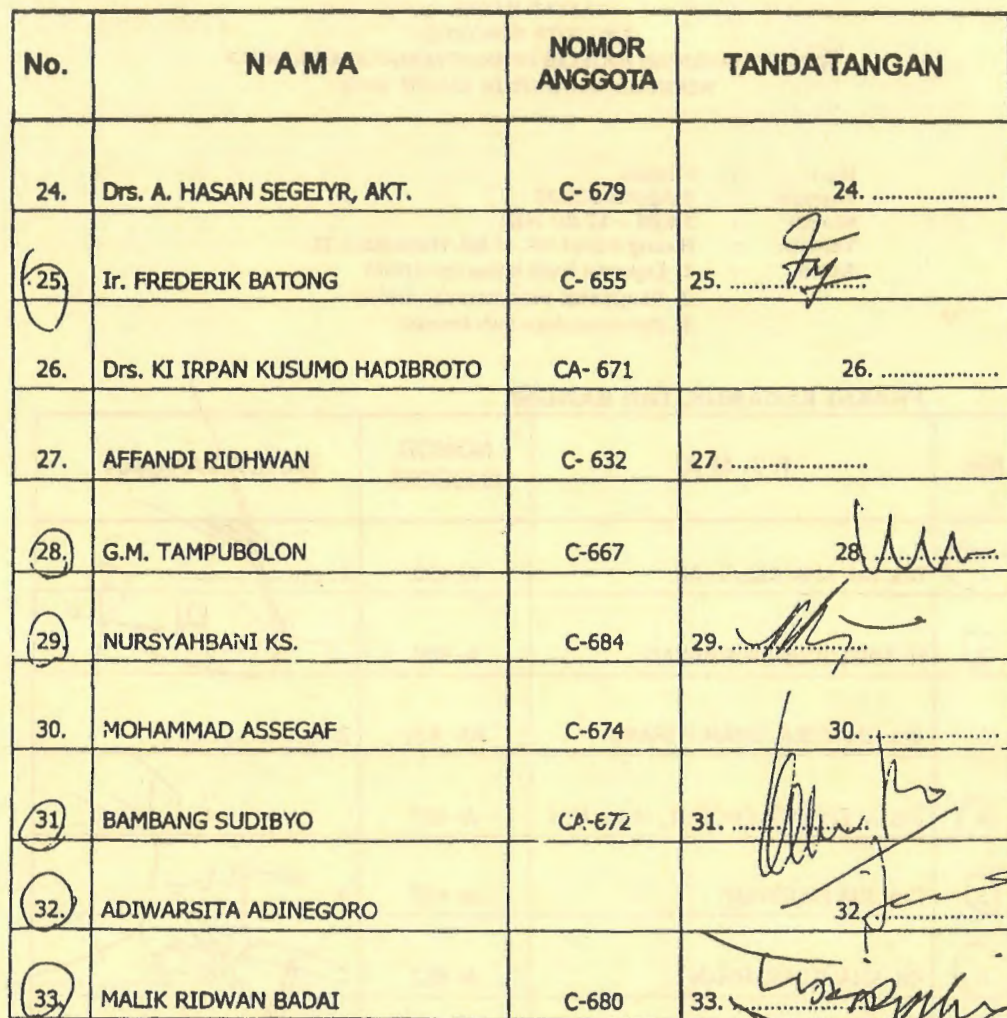 No. N A M A NOMOR ANGGOTA TANDA TANGAN
24. Drs. A. HASAN SEGEIYR, AKT. C- 679 24. ..................
25. Ir. FREDERIK BATONG C- 655 25. ......................
26. Drs. KI IRPAN KUSUMO HADIBROTO CA- 671 26. ..................
27. AFFANDI RIDHWAN C- 632 27. ......................
28. G.M. TAMPUBOLON C-667 28. ..................
29. NURSYAHBANI KS. C-684 29. ......................
30. MOHAMMAD ASSEGAF C-674 30. ..................
31. BAMBANG SUDIBYO CA-672 31. ......................
32. ADIWARSITA ADINEGORO 32. ..................
33. MALIK RIDWAN BADAI C-680 33. ......................